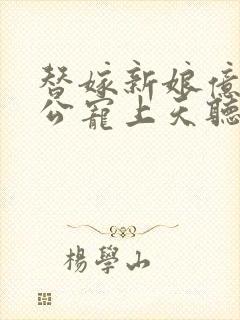 替嫁新娘億
公寵上天聽
楊學山